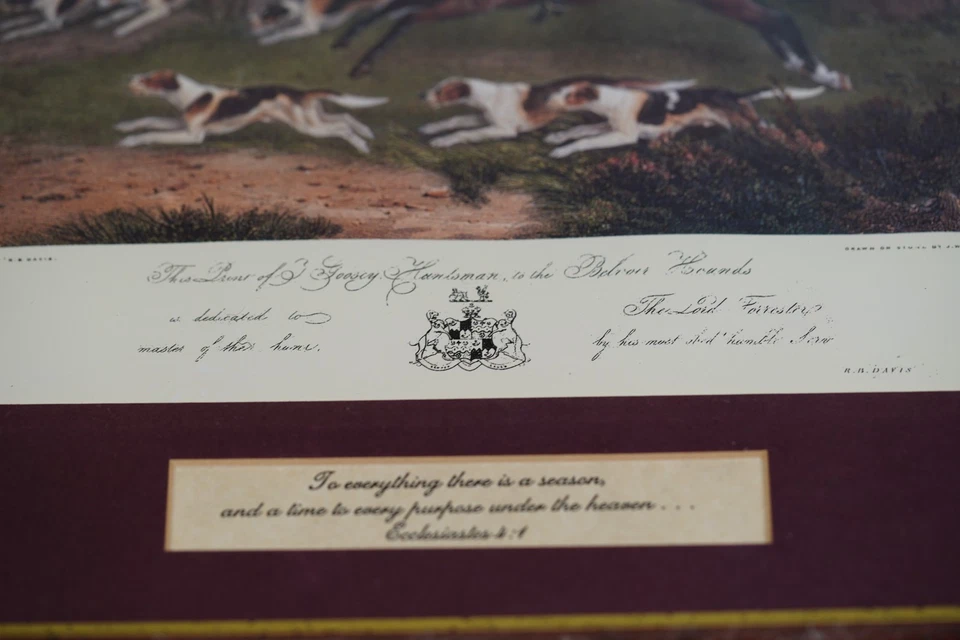 R.B. DAVIS.
DRAWN ON STONE BY J.W
This Print of T Goosey, Huntsman, to the Belvoir Hounds
is dedicated to
The Lord Forrester
master of the hunt.
by his most obd' humble Serv
R.B. DAVIS
To everything there is a season,
and a time to every purpose under the heaven . . .
Ecclesiastes 4:1